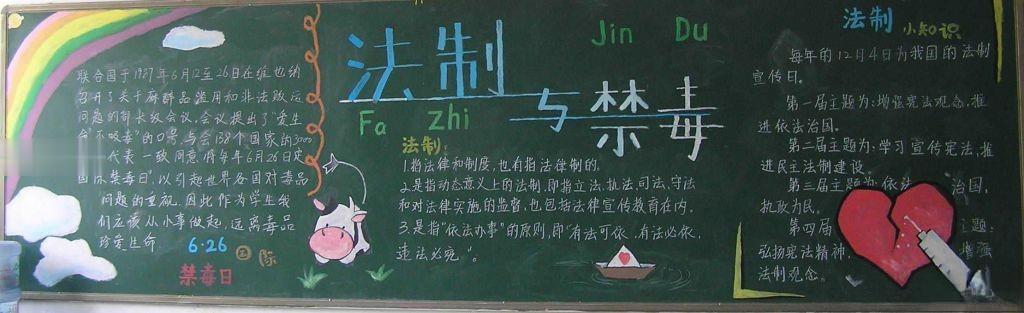 联合国于1987年6月12至26日在维也纳
召开了关于麻醉品滥用和非法贩运
问题的部长级会议,会议提出了"爱生
命 不吸毒"的口号,与会138个国家的3000
代表一致同意将每年6月26日定
国际禁毒日",以引起世界各国对毒品
问题的重视,因此作为学生我
们应该从小事做起,远离毒品
珍爱生命
6·26 国际
禁毒日
法制
Fa zhi
与
Jin Du
禁毒
法制:
1.指法律和制度,也有指法律制的。
2.是指动态意义上的法制,即指立法、执法、司法、守法
和对法律实施的监督,也包括法律宣传教育在内。
3.是指"依法办事"的原则,即"有法可依、有法必依、
违法必究"。
法制 小知识
每年的12月4日为我国的法制
宣传日。
第一届主题为:增强宪法观念,推
进依法治国。
第二届主题为:学习宣传宪法,推
进民主法制建设。
第三届主题为:依法 治国,
执政为民。
第四届 主题:
弘扬宪法精神, 增强
法制观念。